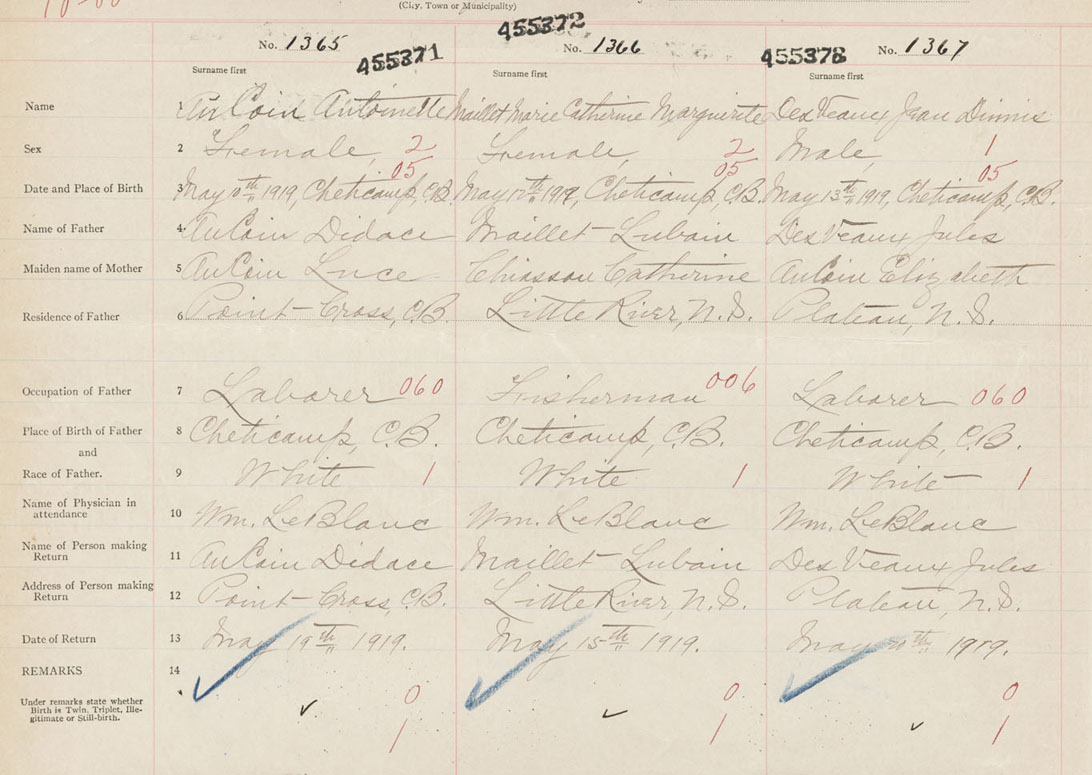 (City, Town or Municipality)
No. 1365 455371
455372 No. 1366
455378 No. 1367
Surname first Surname first Surname first
Name 1 AuCoin Antoinette Maillet Marie Catherine Marguerite DesVeaux Jean Dinnis
Sex 2 Female, 2 Female, 2 Male, 1
05 05 05
Date and Place of Birth 3 May 10th 1919, Cheticamp, C.B. May 1919, Cheticamp, C.B. May 13th 1919, Cheticamp, C.B.
Name of Father 4 AuCoin Didace Maillet Lubain DesVeaux Jules
Maiden name of Mother 5 AuCoin Luce Chiasson Catherine AuCoin Elizabeth
Residence of Father 6 Point-Cross, C.B. Little River, N.S. Plateau, N.S.
Occupation of Father 7 Laborer 060 Fisherman 006 Laborer 060
Place of Birth of Father 8 Cheticamp, C.B. Cheticamp, C.B. Cheticamp, C.B.
and
Race of Father. 9 White 1 White 1 White 1
Name of Physician in
attendance 10 Wm. LeBlanc Wm. LeBlanc Wm. LeBlanc
Name of Person making
Return 11 AuCoin Didace Maillet Lubain DesVeaux Jules
Address of Person making
Return 12 Point-Cross, C.B. Little River, N.S. Plateau, N.S.
Date of Return 13 May 19th 1919. May 15th 1919. May 1919.
REMARKS 14
Under remarks state whether
Birth is Twin, Triplet, Ille-
gitimate or Still-birth.
0 0 0
1 1 1